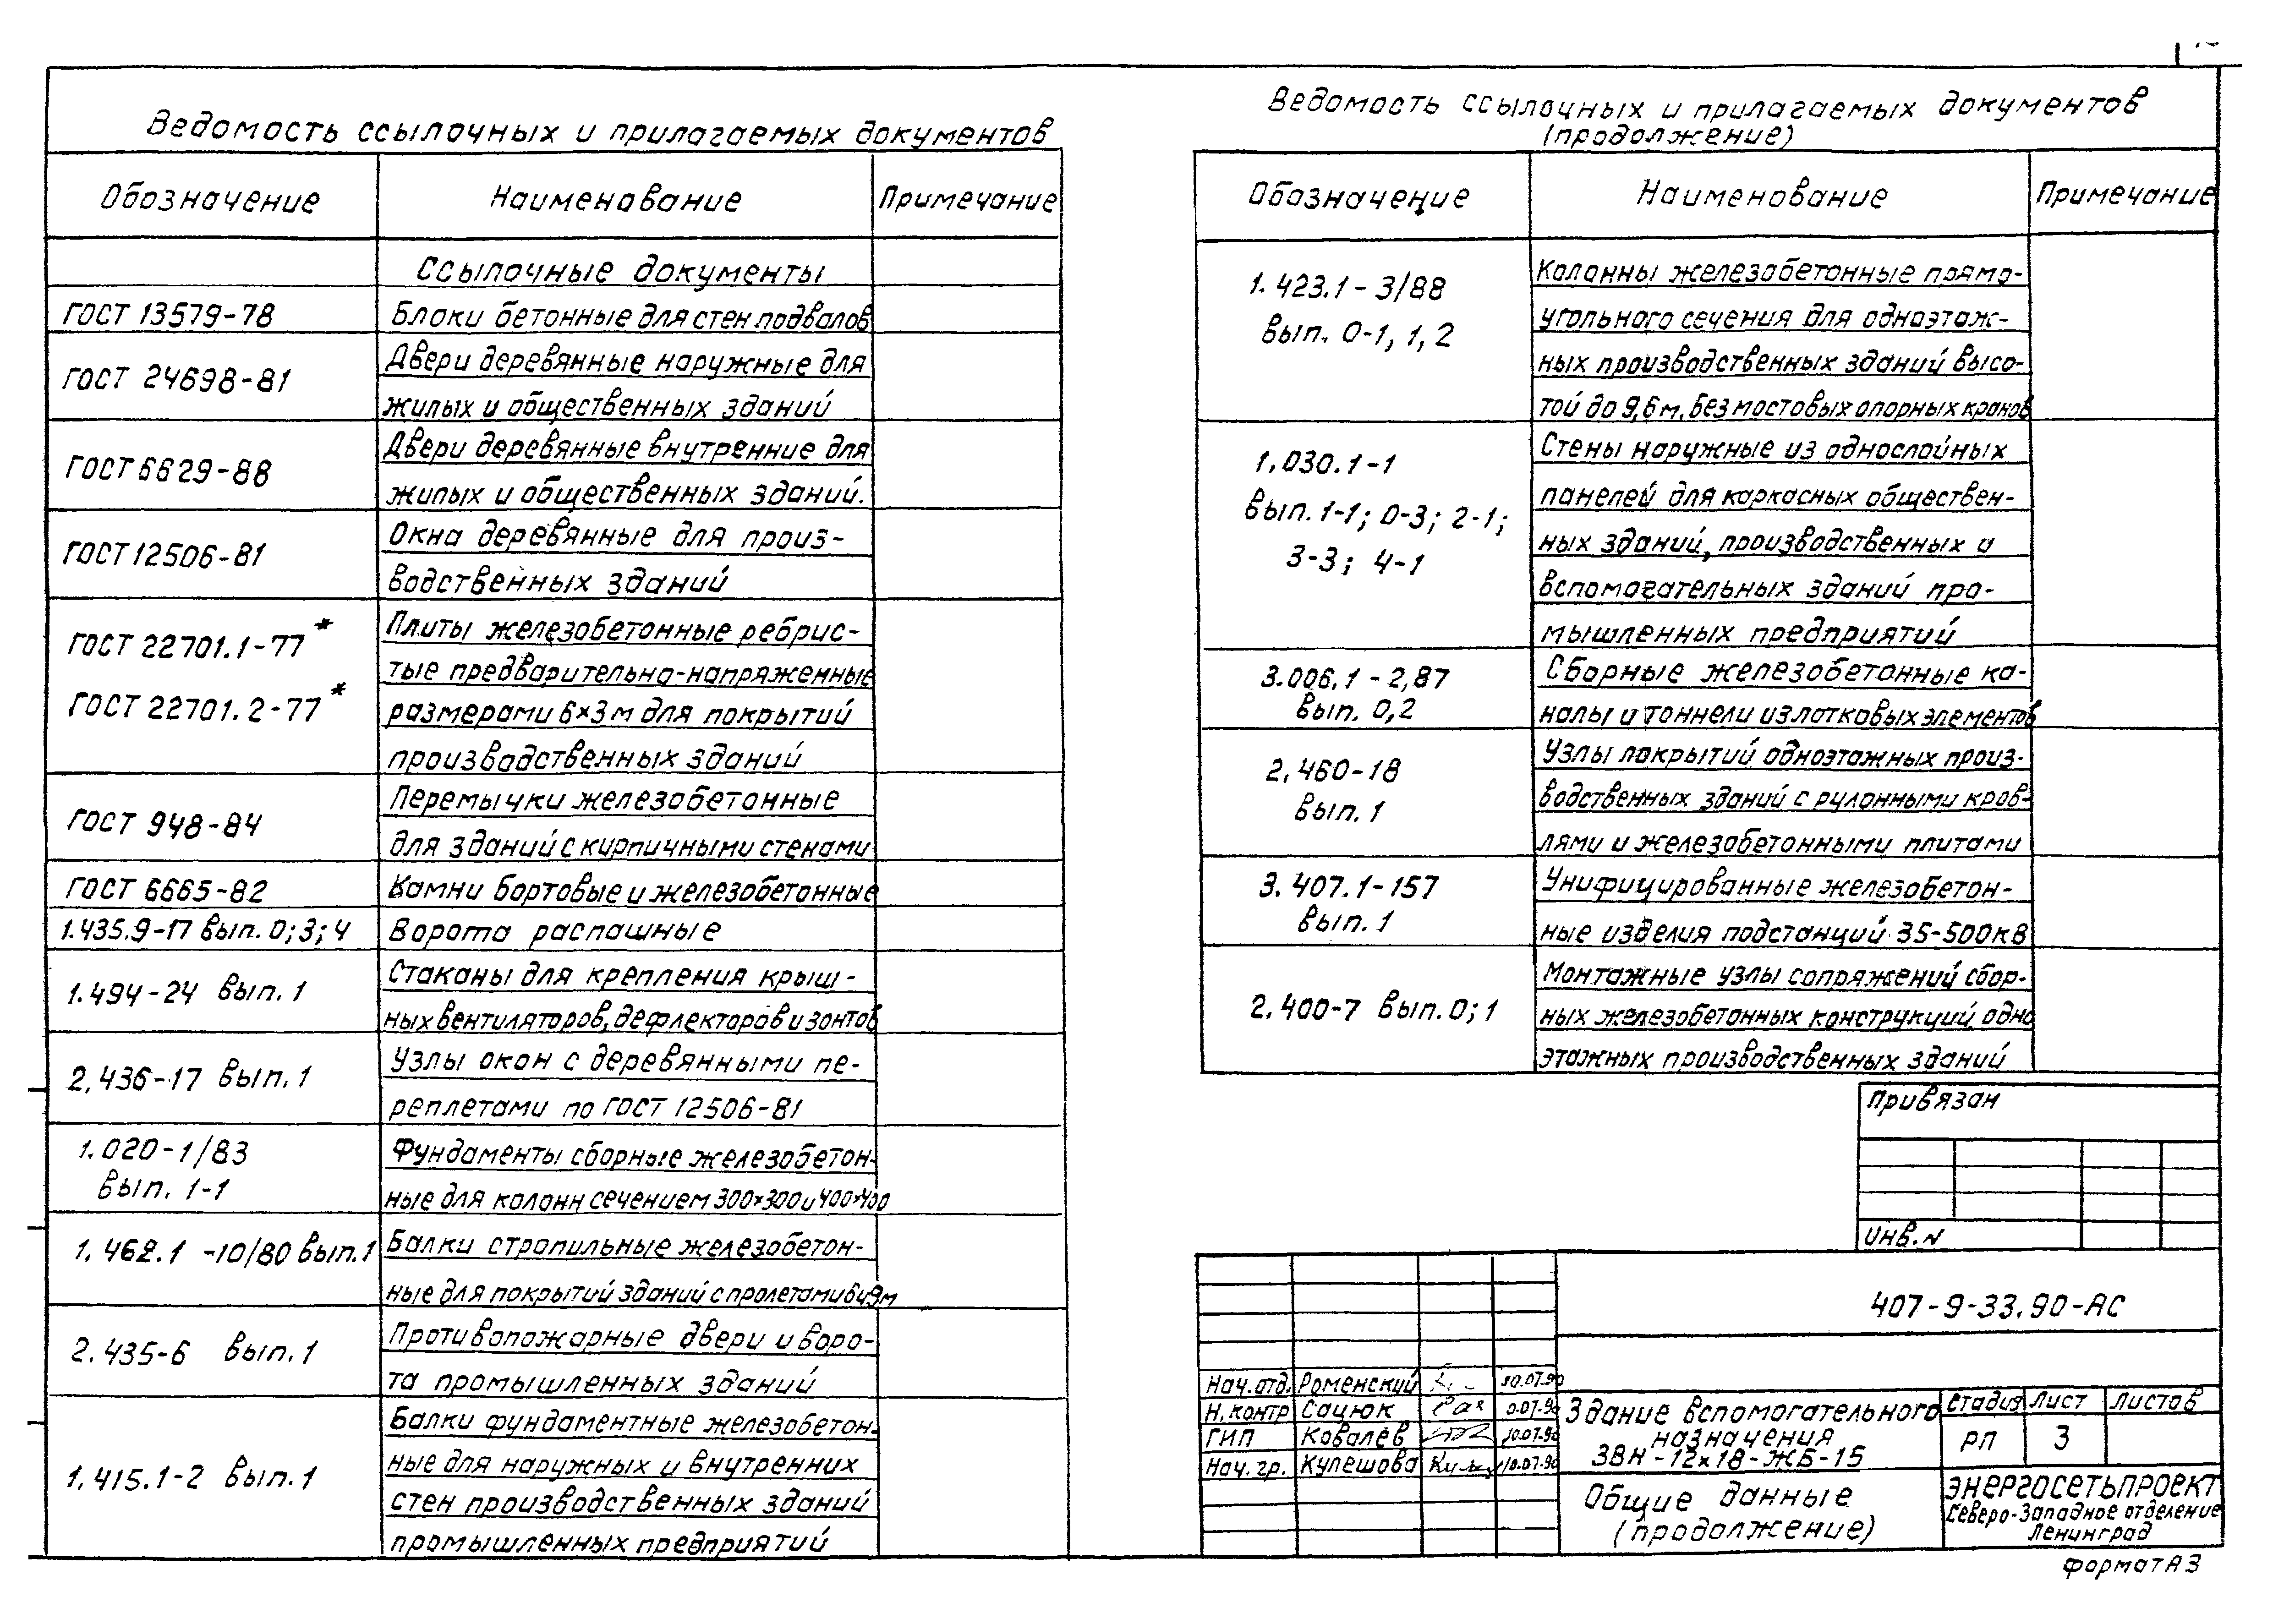 Ведомость ссылочных и прилагаемых документов
Обозначение Наименование Примечание
Ссылочные документы
ГОСТ 13579-78 Блоки бетонные для стен подвалов
ГОСТ 24698-81 Двери деревянные наружные для
жилых и общественных зданий
ГОСТ 6629-88 Двери деревянные внутренние для
жилых и общественных зданий.
ГОСТ 12506-81 Окна деревянные для произ-
водственных зданий
ГОСТ 22701.1-77* Плиты железобетонные ребрис-
тые предварительно-напряженные
ГОСТ 22701.2-77* размерами 6×3м для покрытий
производственных зданий
ГОСТ 948-84 Перемычки железобетонные
для зданий с кирпичными стенами
ГОСТ 6665-82 Камни бортовые и железобетонные
1.435.9-17 вып. 0; 3; 4 Ворота распашные
1.494-24 вып. 1 Стаканы для крепления крыш-
ных вентиляторов, дефлекторов и зонтов
2.436-17 вып. 1 Узлы окон с деревянными пе-
реплетами по ГОСТ 12506-81
1.020-1/83 Фундаменты сборные железобетон-
вып. 1-1 ные для колонн сечением 300×300 и 400×400
1.462.1-10/80 вып.1 Балки стропильные железобетон-
ные для покрытий зданий с пролетами 6 и 9м
2.435-6 вып. 1 Противопожарные двери и воро-
та промышленных зданий
1.415.1-2 вып. 1 Балки фундаментные железобетон-
ные для наружных и внутренних
стен производственных зданий
промышленных предприятий
Ведомость ссылочных и прилагаемых документов
(продолжение)
Обозначение Наименование Примечание
1.423.1-3/88 Колонны железобетонные прямо-
вып. 0-1, 1, 2 угольного сечения для одноэтаж-
ных производственных зданий высо-
той до 9,6м. без мостовых опорных кранов
1.030.1-1 Стены наружные из однослойных
вып. 1-1; 0-3; 2-1; панелей для каркасных обществен-
3-3; 4-1 ных зданий, производственных и
вспомогательных зданий про-
мышленных предприятий
3.006.1-2,87 Сборные железобетонные ка-
вып. 0,2 налы и тоннели из лотковых элементов
2.460-18 Узлы покрытий одноэтажных произ-
вып. 1 водственных зданий с рулонными кров-
лями и железобетонными плитами
3.407.1-157 Унифицированные железобетон-
вып. 1 ные изделия подстанций 35-500кВ
2.400-7 вып. 0; 1 Монтажные узлы сопряжений сбор-
ных железобетонных конструкций одно
этажных производственных зданий
Привязан
Инв. N
407-9-33.90-АС
Нач. отд. Роменский 10.07.90
Н. контр Сацюк 0.07.90
ГИП Ковалёв 10.07.90
Нач. гр. Кулешова 10.07.90
Здание вспомогательного
назначения
ЗВН-12×18-ЖБ-15
Стадия Лист Листов
РП 3
Общие данные
(продолжение)
ЭНЕРГОСЕТЬПРОЕКТ
Северо-Западное отделение
Ленинград
формат А3